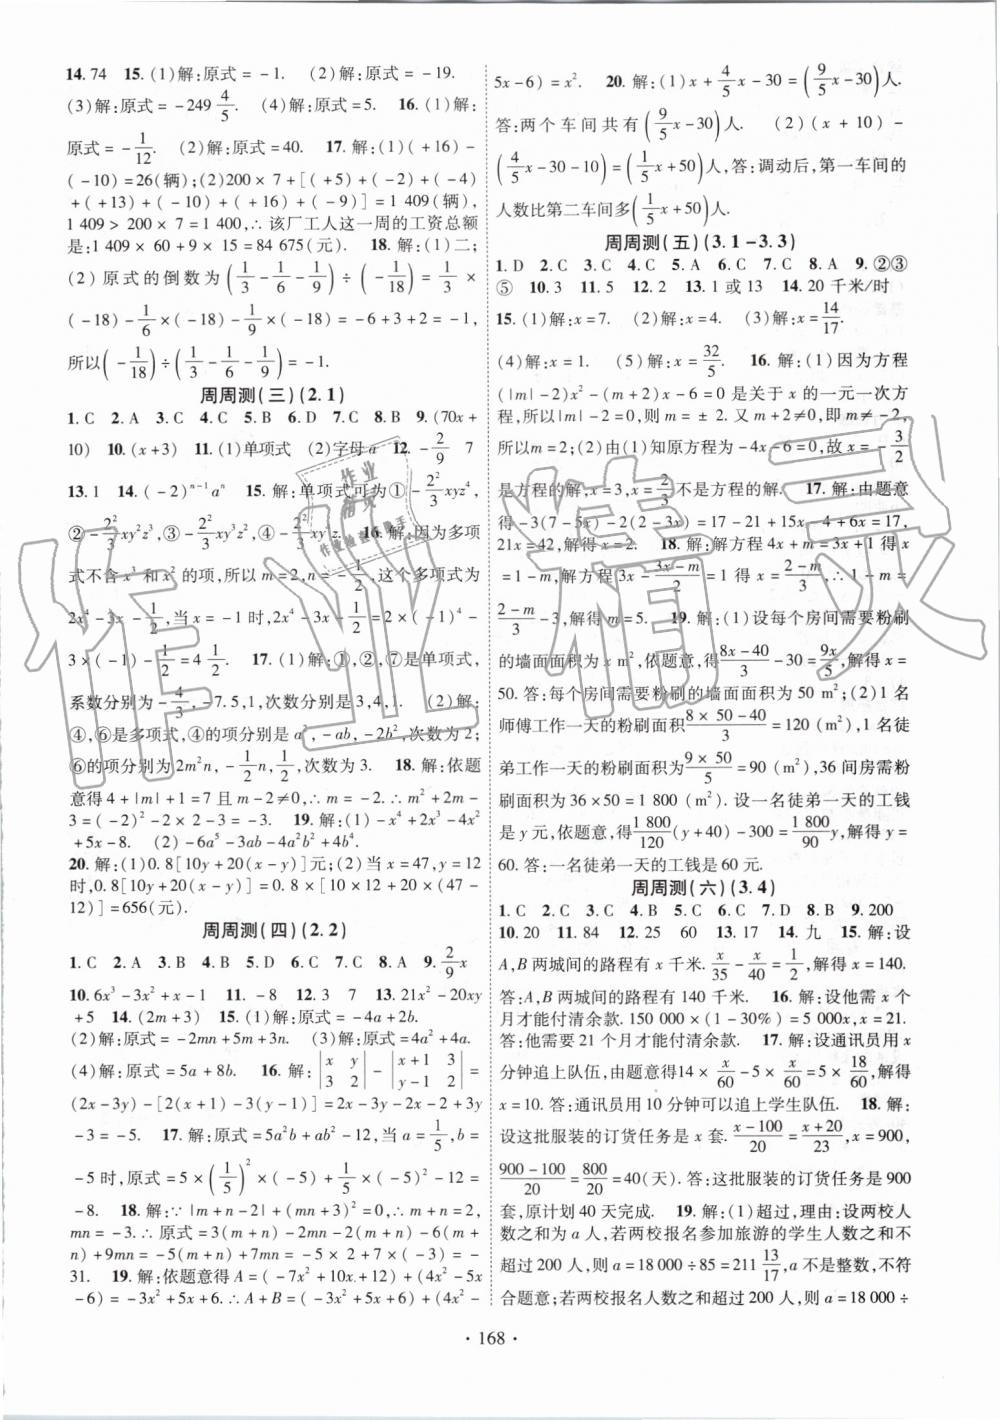 14. 74　15. (1)解:原式 = -1.　(2)解:原式 = -19.
(3)解:原式 = -249 4/5.　(4)解:原式 = 5.　16. (1)解:
原式 = -1/12.　(2)解:原式 = 40.　17. 解:(1)( +16) -
( -10) = 26(辆);(2)200 × 7 + [( +5) + ( -2) + ( -4)
+ ( +13) + ( -10) + ( +16) + ( -9)] = 1 409(辆),
1 409 > 200 × 7 = 1 400,∴ 该厂工人这一周的工资总额
是:1 409 × 60 + 9 × 15 = 84 675(元).　18. 解:(1)二;
(2)原式的倒数为(1/3 - 1/6 - 1/9) ÷ ( -1/18) = 1/3 ×
( -18) - 1/6 × ( -18) - 1/9 × ( -18) = -6 + 3 + 2 = -1,
所以( -1/18) ÷ (1/3 - 1/6 - 1/9) = -1.
周周测(三)(2.1)
1. C　2. A　3. C　4. C　5. B　6. D　7. C　8. B　9. (70x +
10)　10. (x +3)　11. (1)单项式　(2)字母 a　12. -2/9　7
13. 1　14. ( -2)^(n-1) a^n　15. 解:单项式可为① -2²/3 xyz⁴,
② -2²/3 xy²z³,③ -2²/3 xy³z²,④ -2²/3 xy⁴z.　16. 解:因为多项
式不含 x³ 和 x² 的项,所以 m = 2,n = -1/2,这个多项式为
2x⁴ - 3x - 1/2,当 x = -1 时,2x⁴ - 3x - 1/2 = 2 × ( -1)⁴ -
3 × ( -1) - 1/2 = 4 1/2.　17. (1)解:①,②,⑦是单项式,
系数分别为 -4/3, -7.5,1,次数分别是 3,4,1.　(2)解:
④,⑥是多项式,④的项分别是 a², -ab, -2b²,次数为 2;
⑥的项分别为 2m²n, -1/2 n, -1/2,次数为 3.　18. 解:依题
意得 4 + |m| + 1 = 7 且 m - 2 ≠ 0,∴ m = -2. ∴ m² + 2m -
3 = ( -2)² - 2 × 2 - 3 = -3.　19. 解:(1) -x⁴ + 2x³ - 4x²
+ 5x - 8.　(2) -6a⁵ - 3ab - 4a²b² + 4b⁴.
20. 解:(1)0.8[10y + 20(x - y)]元;(2)当 x = 47,y = 12
时,0.8[10y + 20(x - y)] = 0.8 × [10 × 12 + 20 × (47 -
12)] = 656(元).
周周测(四)(2.2)
1. C　2. A　3. B　4. B　5. D　6. C　7. A　8. A　9. 2/9 x
10. 6x³ - 3x² + x - 1　11. -8　12. 3　7　13. 21x² - 20xy
+ 5　14. (2m + 3)　15. (1)解:原式 = -4a + 2b.
(2)解:原式 = -2mn + 5m + 3n.　(3)解:原式 = 4a² + 4.
(4)解:原式 = 5a + 8b.　16. 解:|x y; 3 2| - |x + 1 3; y - 1 2| =
(2x - 3y) - [2(x + 1) - 3(y - 1)] = 2x - 3y - 2x - 2 + 3y
- 3 = -5.　17. 解:原式 = 5a²b + ab² - 12,当 a = 1/5,b =
-5 时,原式 = 5 × (1/5)² × ( -5) + 1/5 × ( -5)² - 12 =
-8.　18. 解:∵ |m + n - 2| + (mn + 3)² = 0,∴ m + n = 2,
mn = -3. ∴ 原式 = 3(m + n) - 2mn + 2(m + n) - 6mn +
n) + 9mn = -15(m + n) + 7mn = -15 × 2 - 7 × ... = -
31.　19. 解:依题意得 A = ( -7x² + 10x + 12) + (4x² - 5x
- 6) = -3x² + 5x + 6. ∴ A + B = ( -3x² + 5x + 6) + (4x² -
5x - 6) = x².　20. 解:(1)x + 4/5 x - 30 = (9/5 x - 30)人.
答:两个车间共有(9/5 x - 30)人.　(2)(x + 10) -
(4/5 x - 30 - 10) = (1/5 x + 50)人,答:调动后,第一车间的
人数比第二车间多(1/5 x + 50)人.
周周测(五)(3.1 - 3.3)
1. D　2. C　3. C　4. C　5. A　6. C　7. C　8. A　9. ②③
⑤　10. 3　11. 5　12. 2　13. 1 或 13　14. 20 千米/时
15. (1)解:x = 7.　(2)解:x = 4.　(3)解:x = 14/17.
(4)解:x = 1.　(5)解:x = 32/5.　16. 解:(1)因为方程
(|m| - 2)x² - (m + 2)x - 6 = 0 是关于 x 的一元一次方
程,所以|m| - 2 = 0,则 m = ± 2. 又 m + 2 ≠ 0,即 m ≠ -2,
所以 m = 2;(2)由(1)知原方程为 -4x - 6 = 0,故 x = -3/2
是方程的解,x = 3,x = 2/3 不是方程的解.　17. 解:由题意
得 -3(7 - 5x) - 2(2 - 3x) = 17, -21 + 15x - 4 + 6x = 17,
21x = 42,解得 x = 2.　18. 解:解方程 4x + m = 3x + 1 得 x
= 1 - m,解方程 3x - m = ... 得 x = (2 - m)/3, ∴ 1 - m =
(2 - m)/3 - 3,解得 m = 5.　19. 解:(1)设每个房间需要粉刷
的墙面面积为 x m²,依题意,得(8x - 40)/3 - 30 = 9x/5,解得 x =
50. 答:每个房间需要粉刷的墙面面积为 50 m²;(2)1 名
师傅工作一天的粉刷面积(8 × 50 - 40)/3 = 120 (m²),1 名徒
弟工作一天的粉刷面积为(9 × 50)/5 = 90 (m²),36 间房需粉
刷面积为 36 × 50 = 1 800 (m²). 设一名徒弟一天的工钱
是 y 元,依题意,得 1 800/120 (y + 40) - 300 = 1 800/90 y,解得 y =
60. 答:一名徒弟一天的工钱是 60 元.
周周测(六)(3.4)
1. C　2. C　3. C　4. B　5. C　6. B　7. D　8. B　9. 200
10. 20　11. 84　12. 25　60　13. 17　14. 九　15. 解:设
A,B 两城间的路程有 x 千米. x/35 - x/40 = 1/2,解得 x = 140.
答:A,B 两城间的路程有 140 千米.　16. 解:设他需 x 个
月才能付清余款. 150 000 × (1 - 30%) = 5 000x,x = 21.
答:他需要 21 个月才能付清余款.　17. 解:设通讯员用 x
分钟追上队伍,由题意,得14 × x/60 - 5 × x/60 = 5 × 18/60,解得
x = 10. 答:通讯员用 10 分钟可以追上学生队伍.　18. 解:
设这批服装的订货任务是 x 套. (x - 100)/20 = (x + 20)/23,x = 900,
(900 - 100)/20 = 800/20 = 40(天). 答:这批服装的订货任务是 900
套,原计划 40 天完成.　19. 解:(1)超过,理由:设两校人
数之和为 a 人,若两校报名参加旅游的学生人数之和不
超过 200 人,则 a = 18 000 ÷ 85 = 211 13/17,a 不是整数,不符
合题意;若两校报名人数之和超过 200 人,则 a = 18 000 ÷
· 168 ·
作业精灵